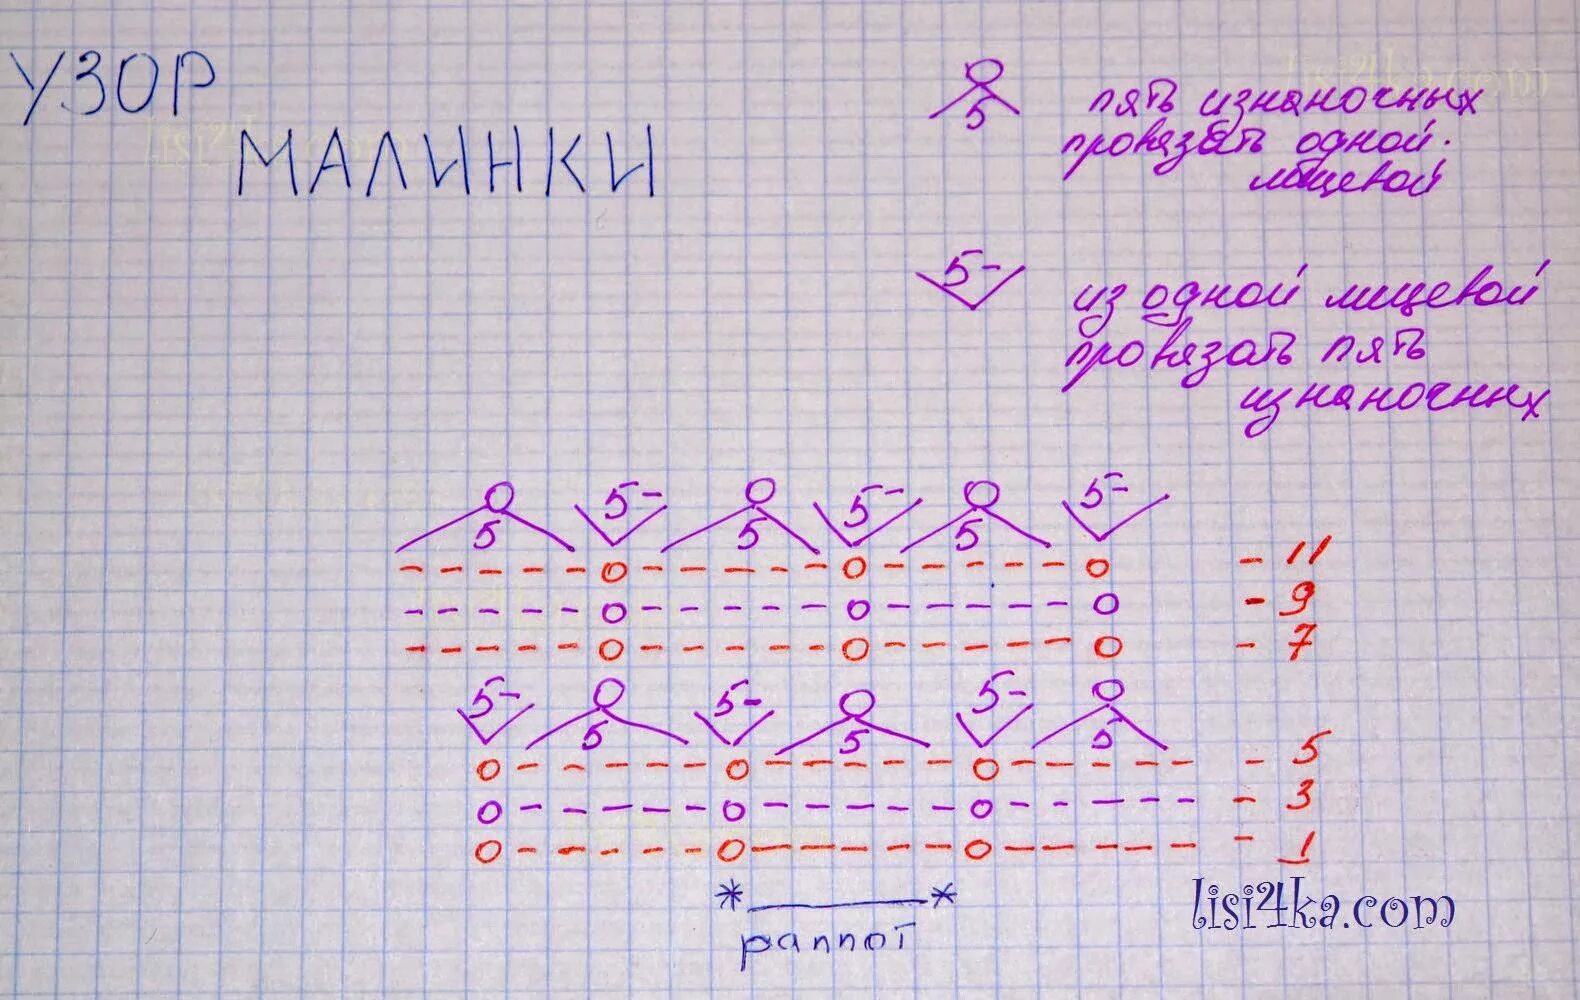 УЗОР
МАЛИНКИ
5 пять изнаночных
провязать одной
лицевой
5- из одной лицевой
провязать пять
изнаночных
5 5- 5 5- 5 5-
- - - - - O - - - - - O - - - - - O - 11
- - - - - O - - - - - O - - - - - O - 9
- - - - - O - - - - - O - - - - - O - 7
5- 5 5- 5 5- 5
O - - - - - O - - - - - O - - - - - - 5
O - - - - - O - - - - - O - - - - - - 3
O - - - - - O - - - - - O - - - - - - 1
* *
раппот
lisi4ka.com